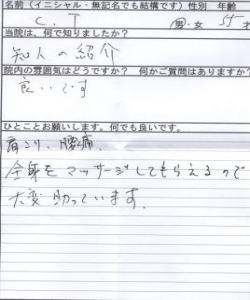 名前（イニシャル・無記名でも結構です）性別 年齢
C. T 男・女 55 才
当院は、何で知りましたか？
知人の紹介
院内の雰囲気はどうですか？ 何かご質問はありますか？
良いです
ひとことお願いします。何でも良いです。
肩こり、腰痛、
全身をマッサージしてもらえるので
大変助っています。